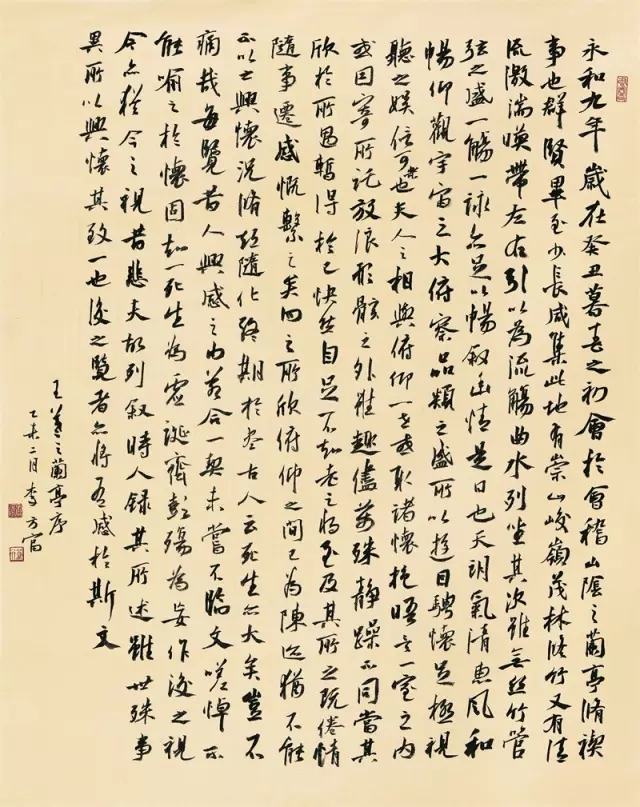 永和九年歲在癸丑暮春之初會於會稽山陰之蘭亭脩禊
事也群賢畢至少長咸集此地有崇山峻嶺茂林脩竹又有清
流激湍暎帶左右引以為流觴曲水列坐其次雖無絲竹管
弦之盛一觴一詠亦足以暢敘幽情是日也天朗氣清惠風和
暢仰觀宇宙之大俯察品類之盛所以遊目騁懷足極視
聽之娛信可樂也夫人之相與俯仰一世或取諸懷抱晤言一室之內
或因寄所託放浪形骸之外雖趣儘萬殊靜躁不同當其
欣於所遇暫得於己快然自足不知老之將至及其所之既倦情
隨事遷感慨繫之矣向之所欣俯仰之間已為陳迹猶不能
不以之興懷況脩短隨化終期於盡古人云死生亦大矣豈不
痛哉每覽昔人興感之由若合一契未嘗不臨文嗟悼不
能喻之於懷固知一死生為虛誕齊彭殤為妄作後之視
今亦猶今之視昔悲夫故列敘時人錄其所述雖世殊事
異所以興懷其致一也後之覽者亦將有感於斯文
王羲之蘭亭序
乙未二月李方